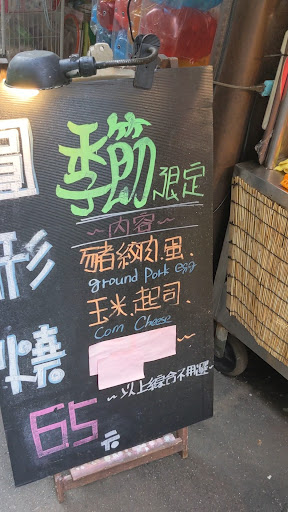 季節限定
~內容~
豬絞肉.蛋.
ground Pork egg
玉米.起司.
Corn Cheese
~以上綜合不用選~
形
燒
65元